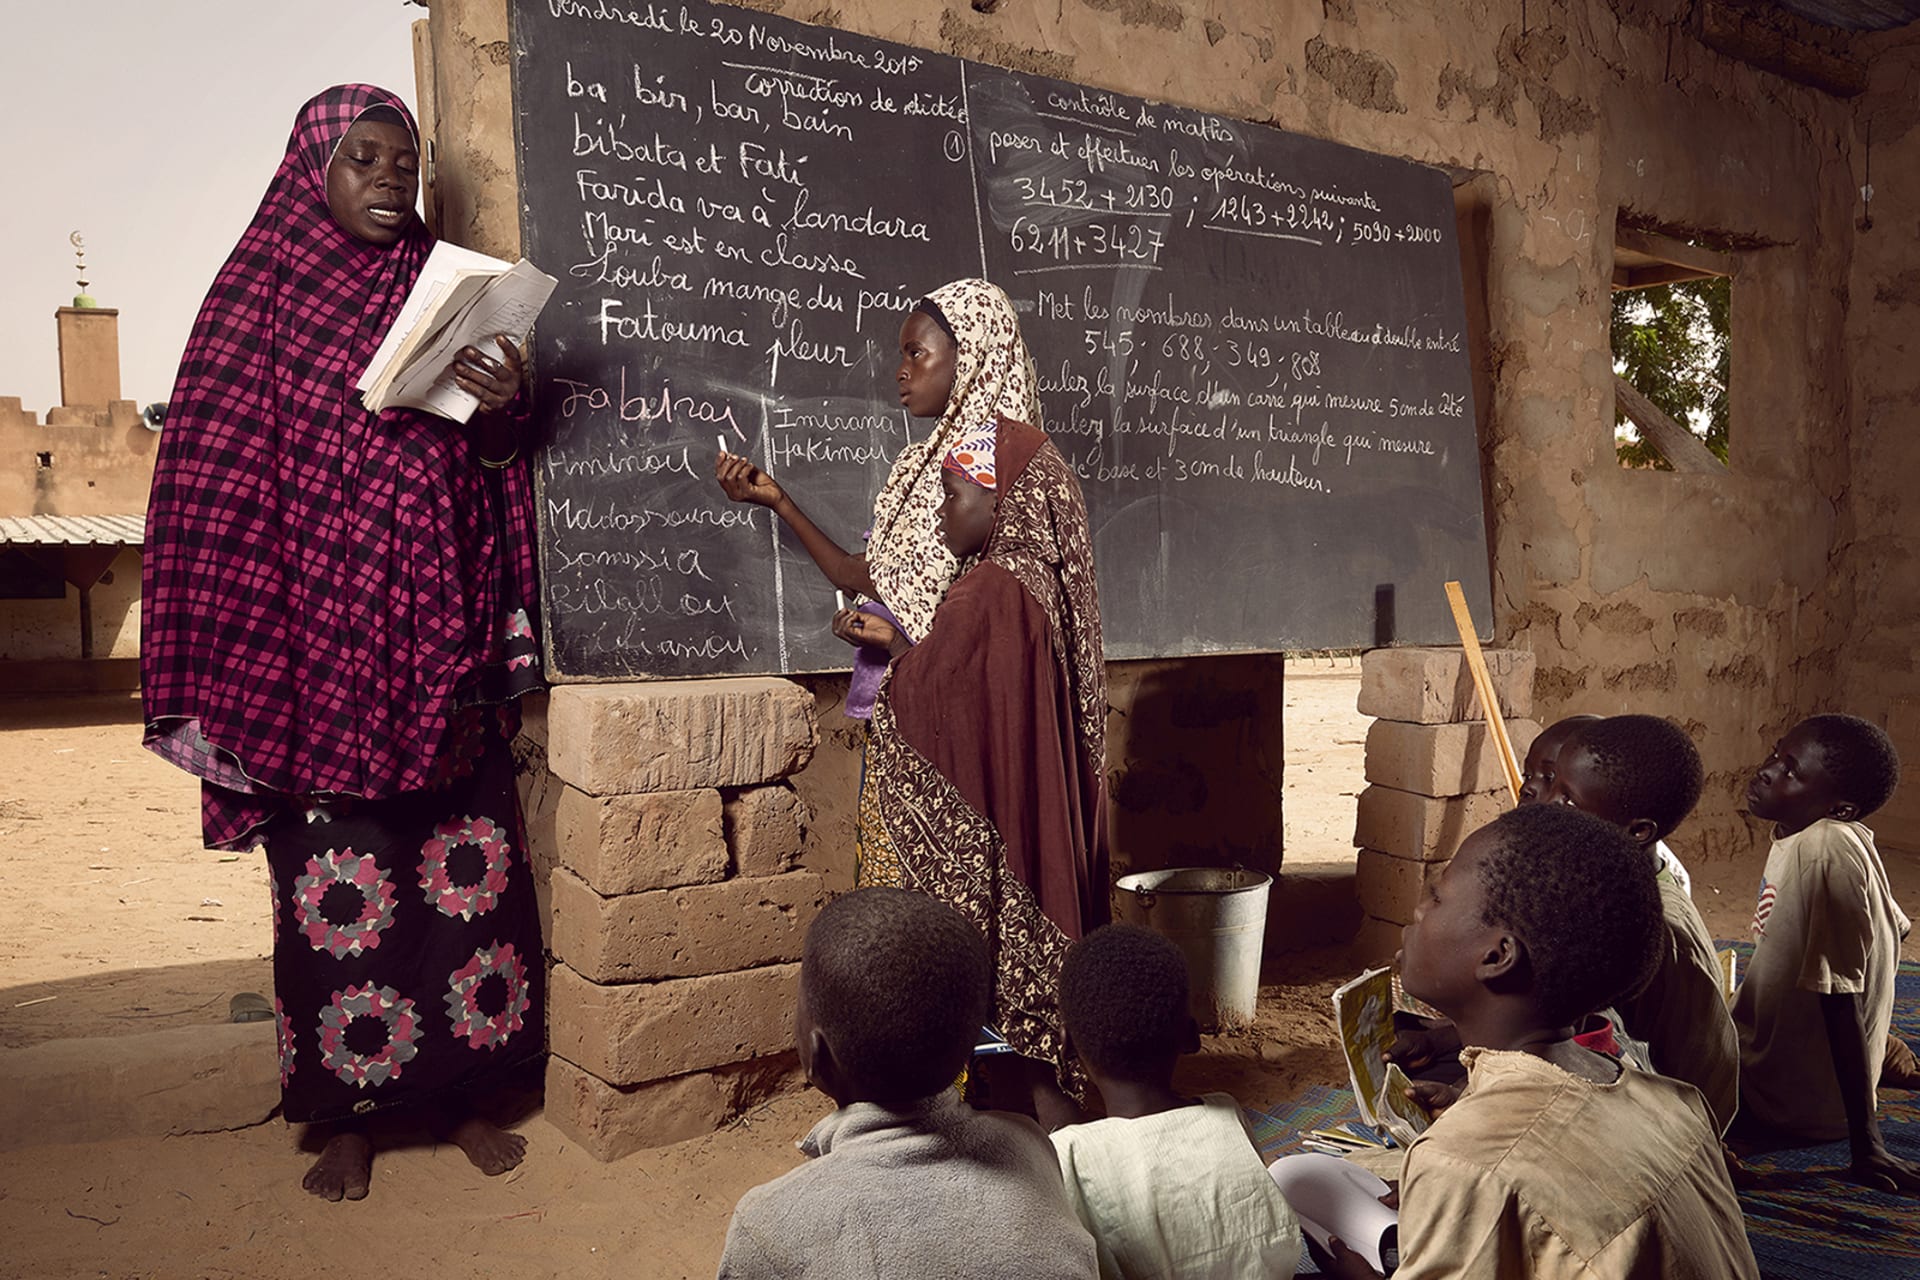 Vendredi le 20 Novembre 2015
correction de dictée
ba, bir, bar, bain
bibata et Fati
Farida va à landara
Mari est en classe
Louba mange du pain
Fatouma pleur
Jabirai
Aminou
Imirana
Hakimou
Bilallou
contrôle de maths
① poser et effectuer les opérations suivante
3452 + 2130 ; 1243 + 2242 ; 5090 + 2000
6211 + 3427
Met les nombres dans un tableau à double entré
545; 688; 349; 808
culez la surface d'un carré qui mesure 5 cm de côté
culez la surface d'un triangle qui mesure
de base et 3 cm de hauteur.